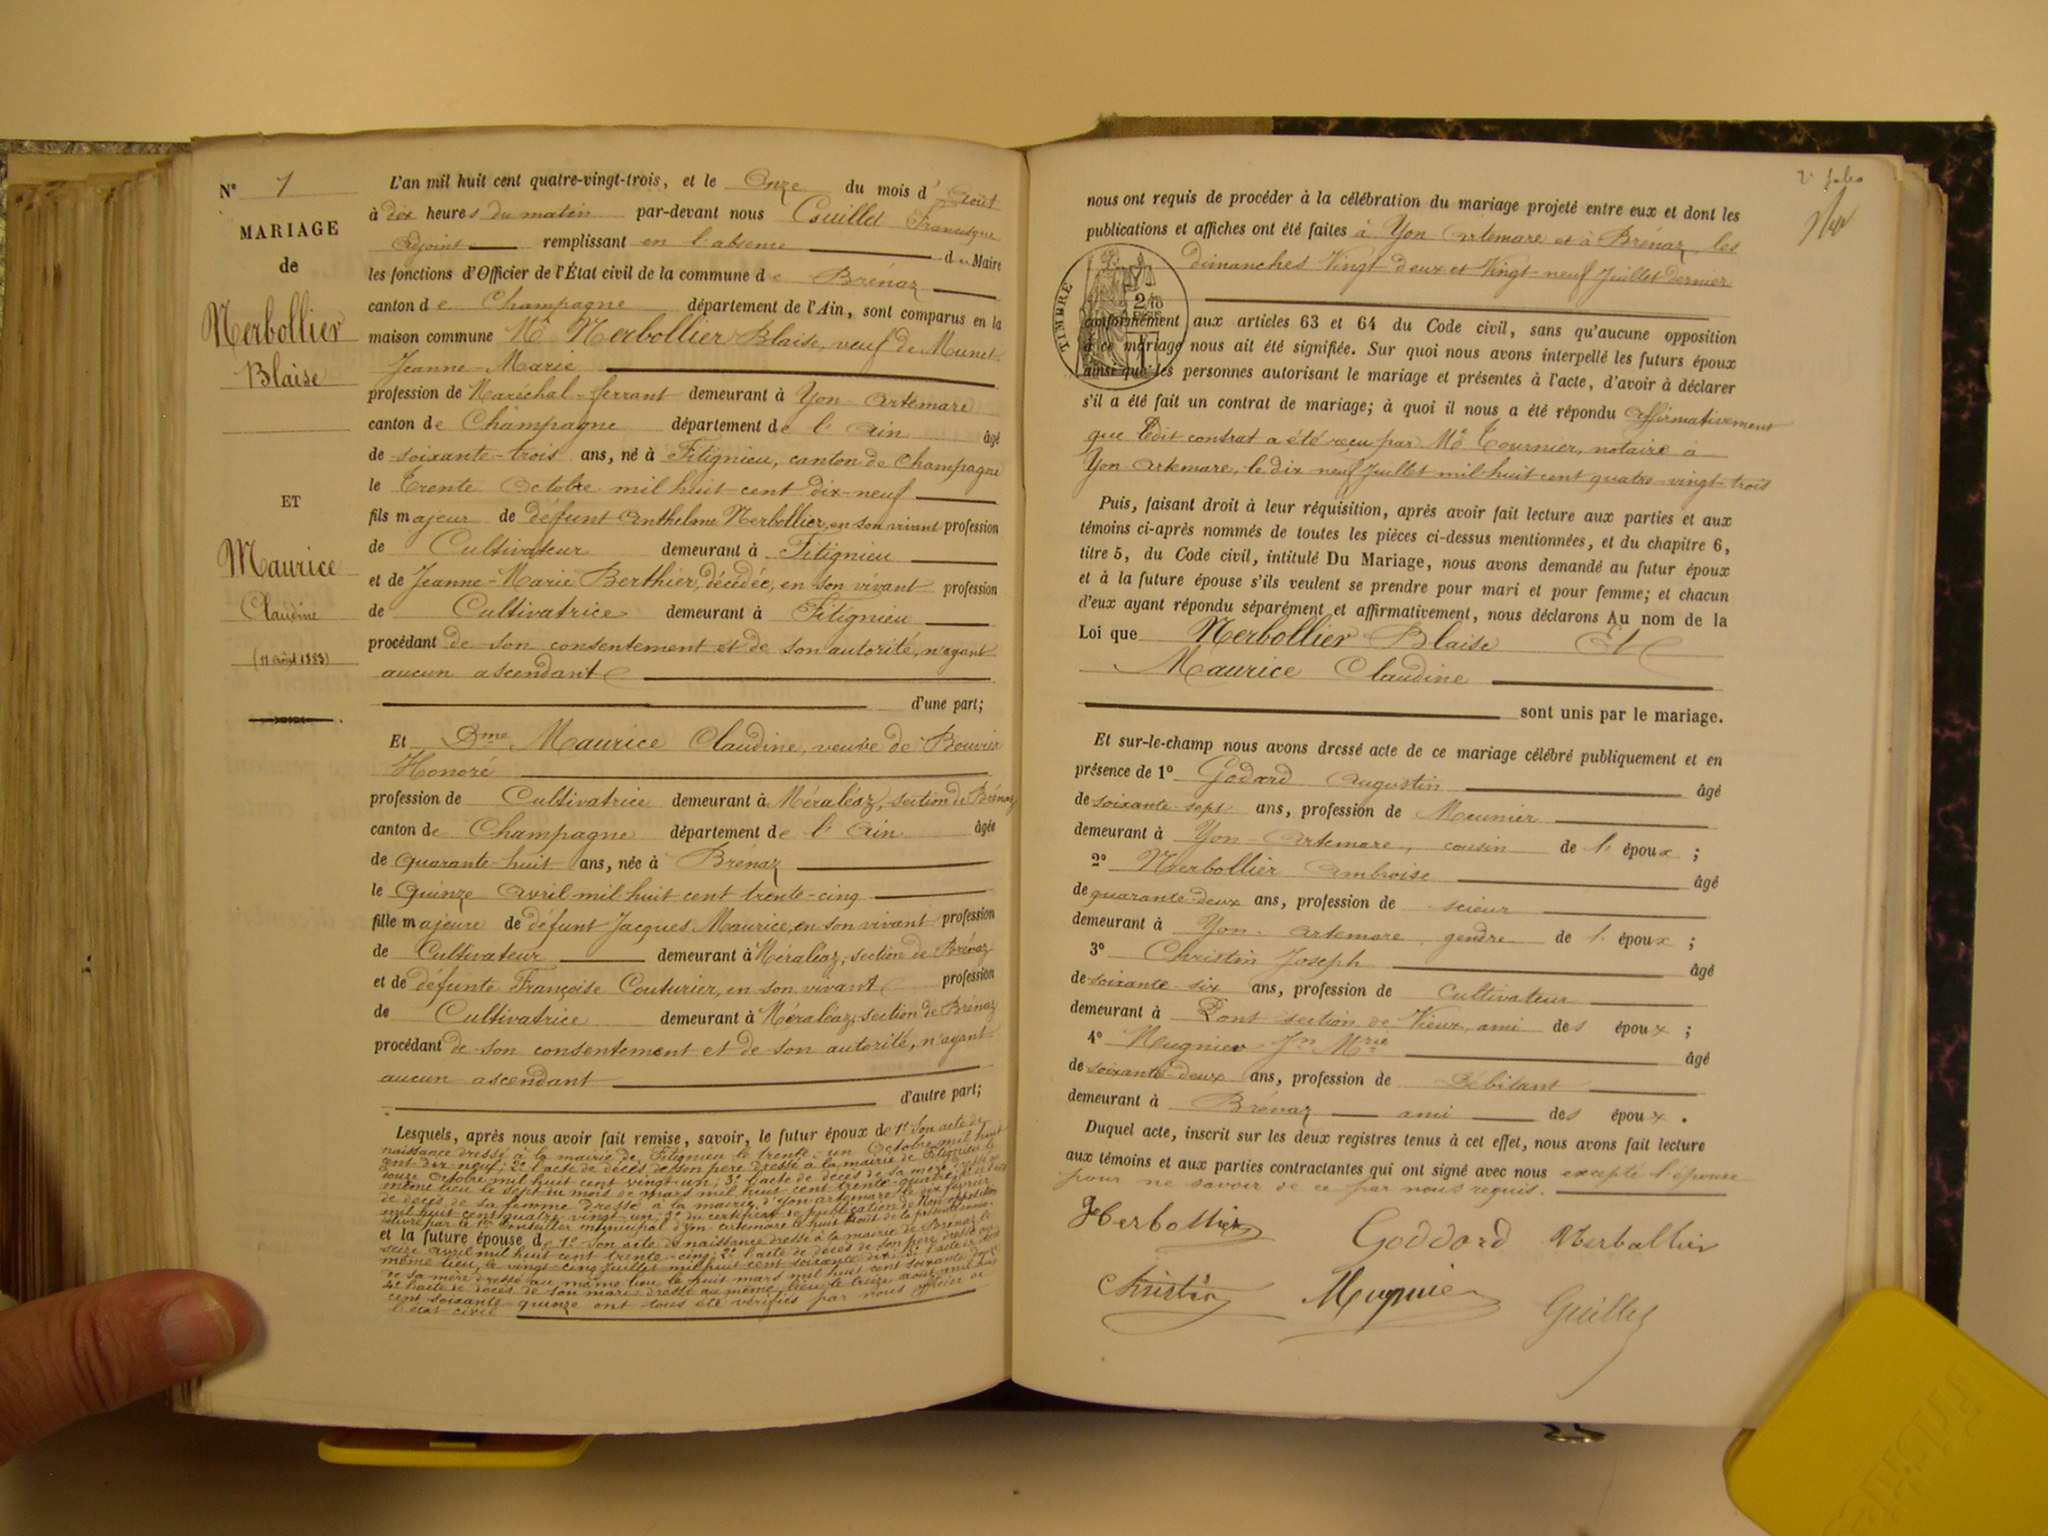 N° 1
MARIAGE
de
Nerbollier
Blaise
ET
Maurice
Claudine
(11 août 1883)
L'an mil huit cent quatre-vingt-trois, et le Onze du mois d'Août
à dix heures du matin par-devant nous Francisque
Adjoint remplissant en l'absence du Maire
les fonctions d'Officier de l'État civil de la commune de Brénaz
canton de Champagne département de l'Ain, sont comparus en la
maison commune Mr Nerbollier Blaise, veuf de Munet
Jeanne-Marie
profession de Maréchal-ferrant demeurant à Yon-Artemare
canton de Champagne département de l'Ain âgé
de soixante-trois ans, né à Fitignieu, canton de Champagne
le Trente Octobre mil huit cent dix-neuf
fils majeur de défunt Anthelme Nerbollier, en son vivant profession
de Cultivateur demeurant à Fitignieu
et de Jeanne-Marie Berthier, décédée, en son vivant profession
de Cultivatrice demeurant à Fitignieu
procédant de son consentement et de son autorité, n'ayant
aucun ascendant
d'une part;
Et Dme Maurice Claudine, veuve de Bouvier
Honoré
profession de Cultivatrice demeurant à Méraléaz, section de Brénaz
canton de Champagne département de l'Ain âgée
de quarante-huit ans, née à Brénaz
le Quinze Avril mil huit cent trente-cinq
fille majeure de défunt Jacques Maurice, en son vivant profession
de Cultivateur demeurant à Méraléaz, section de Brénaz
et de défunte Françoise Couturier, en son vivant profession
de Cultivatrice demeurant à Méraléaz, section de Brénaz
procédant de son consentement et de son autorité, n'ayant
aucun ascendant
d'autre part;
Lesquels, après nous avoir fait remise, savoir, le futur époux de 1° Son acte de
naissance dressé à la mairie de Fitignieu le trente-un Octobre mil huit
cent dix neuf; 2° l'acte de décès de son père dressé à la mairie de Fitignieu le
Octobre mil huit cent vingt-un; 3° l'acte de décès de sa mère dressé au
même lieu le sept du mois de mars mil huit cent trente-quatre;
de décès de sa femme dressé à la mairie d'Yon artemare le dix février
mil huit cent quatre-vingt-un; 5° du certificat de publication de Non opposition
délivré par le 1er Conseiller municipal d'Yon artemare le huit Août
et la future épouse de 1° Son acte de naissance dressé à la mairie de Brénaz le
seize avril mil huit cent trente-cinq; 2° l'acte de décès de son père dressé au
même lieu, le vingt-cinq Juillet mil huit cent soixante dix; 3° l'acte de décès
de sa mère dressé au même lieu le huit mars mil huit cent soixante
4° l'acte de décès de son mari dressé au même lieu le treize août mil huit
cent soixante-quinze ont tous été vérifiés par nous officier de
l'état civil
2e folio
nous ont requis de procéder à la célébration du mariage projeté entre eux et dont les
publications et affiches ont été faites à Yon Artemare et à Brénaz, les
dimanches Vingt-deux et Vingt-neuf Juillet dernier
TIMBRE
conformément aux articles 63 et 64 du Code civil, sans qu'aucune opposition
à ce mariage nous ait été signifiée. Sur quoi nous avons interpellé les futurs époux
ainsi que les personnes autorisant le mariage et présentes à l'acte, d'avoir à déclarer
s'il a été fait un contrat de mariage; à quoi il nous a été répondu affirmativement
que ledit contrat a été reçu par Me Tournier, notaire à
Yon-Artemare, le dix neuf Juillet mil huit cent quatre-vingt-trois
Puis, faisant droit à leur réquisition, après avoir fait lecture aux parties et aux
témoins ci-après nommés de toutes les pièces ci-dessus mentionnées, et du chapitre 6,
titre 5, du Code civil, intitulé Du Mariage, nous avons demandé au futur époux
et à la future épouse s'ils veulent se prendre pour mari et pour femme; et chacun
d'eux ayant répondu séparément et affirmativement, nous déclarons Au nom de la
Loi que Nerbollier Blaise Et
Maurice Claudine
sont unis par le mariage.
Et sur-le-champ nous avons dressé acte de ce mariage célébré publiquement et en
présence de 1° Godard Augustin âgé
de soixante-sept ans, profession de Meunier
demeurant à Yon-Artemare, cousin de l'époux;
2° Nerbollier Ambroise âgé
de quarante-deux ans, profession de scieur
demeurant à Yon-Artemare, gendre de l'époux;
3° Christin Joseph âgé
de soixante-six ans, profession de Cultivateur
demeurant à Pont section de Vieux, ami des époux;
4° Mugnier Jn Mrie âgé
de soixante-deux ans, profession de Débitant
demeurant à Brénaz ami des époux.
Duquel acte, inscrit sur les deux registres tenus à cet effet, nous avons fait lecture
aux témoins et aux parties contractantes qui ont signé avec nous excepté l'épouse
pour ne savoir de ce par nous requis.
Nerbollier Goddard Nerbollier
Christin Mugnier